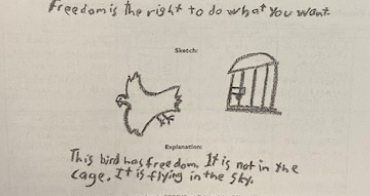 Freedom is the right to do what you want.
Sketch:
Explanation:
This bird has freedom. It is not in the
cage. It is flying in the sky.